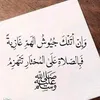 وَإِن أَتَتْكَ جُيُوشُ الهَمِّ غَازِيَةً
فَبِالصَّلَاةِ عَلَى المُخْتَارِ تَنْهَزِمُ
ﷺ